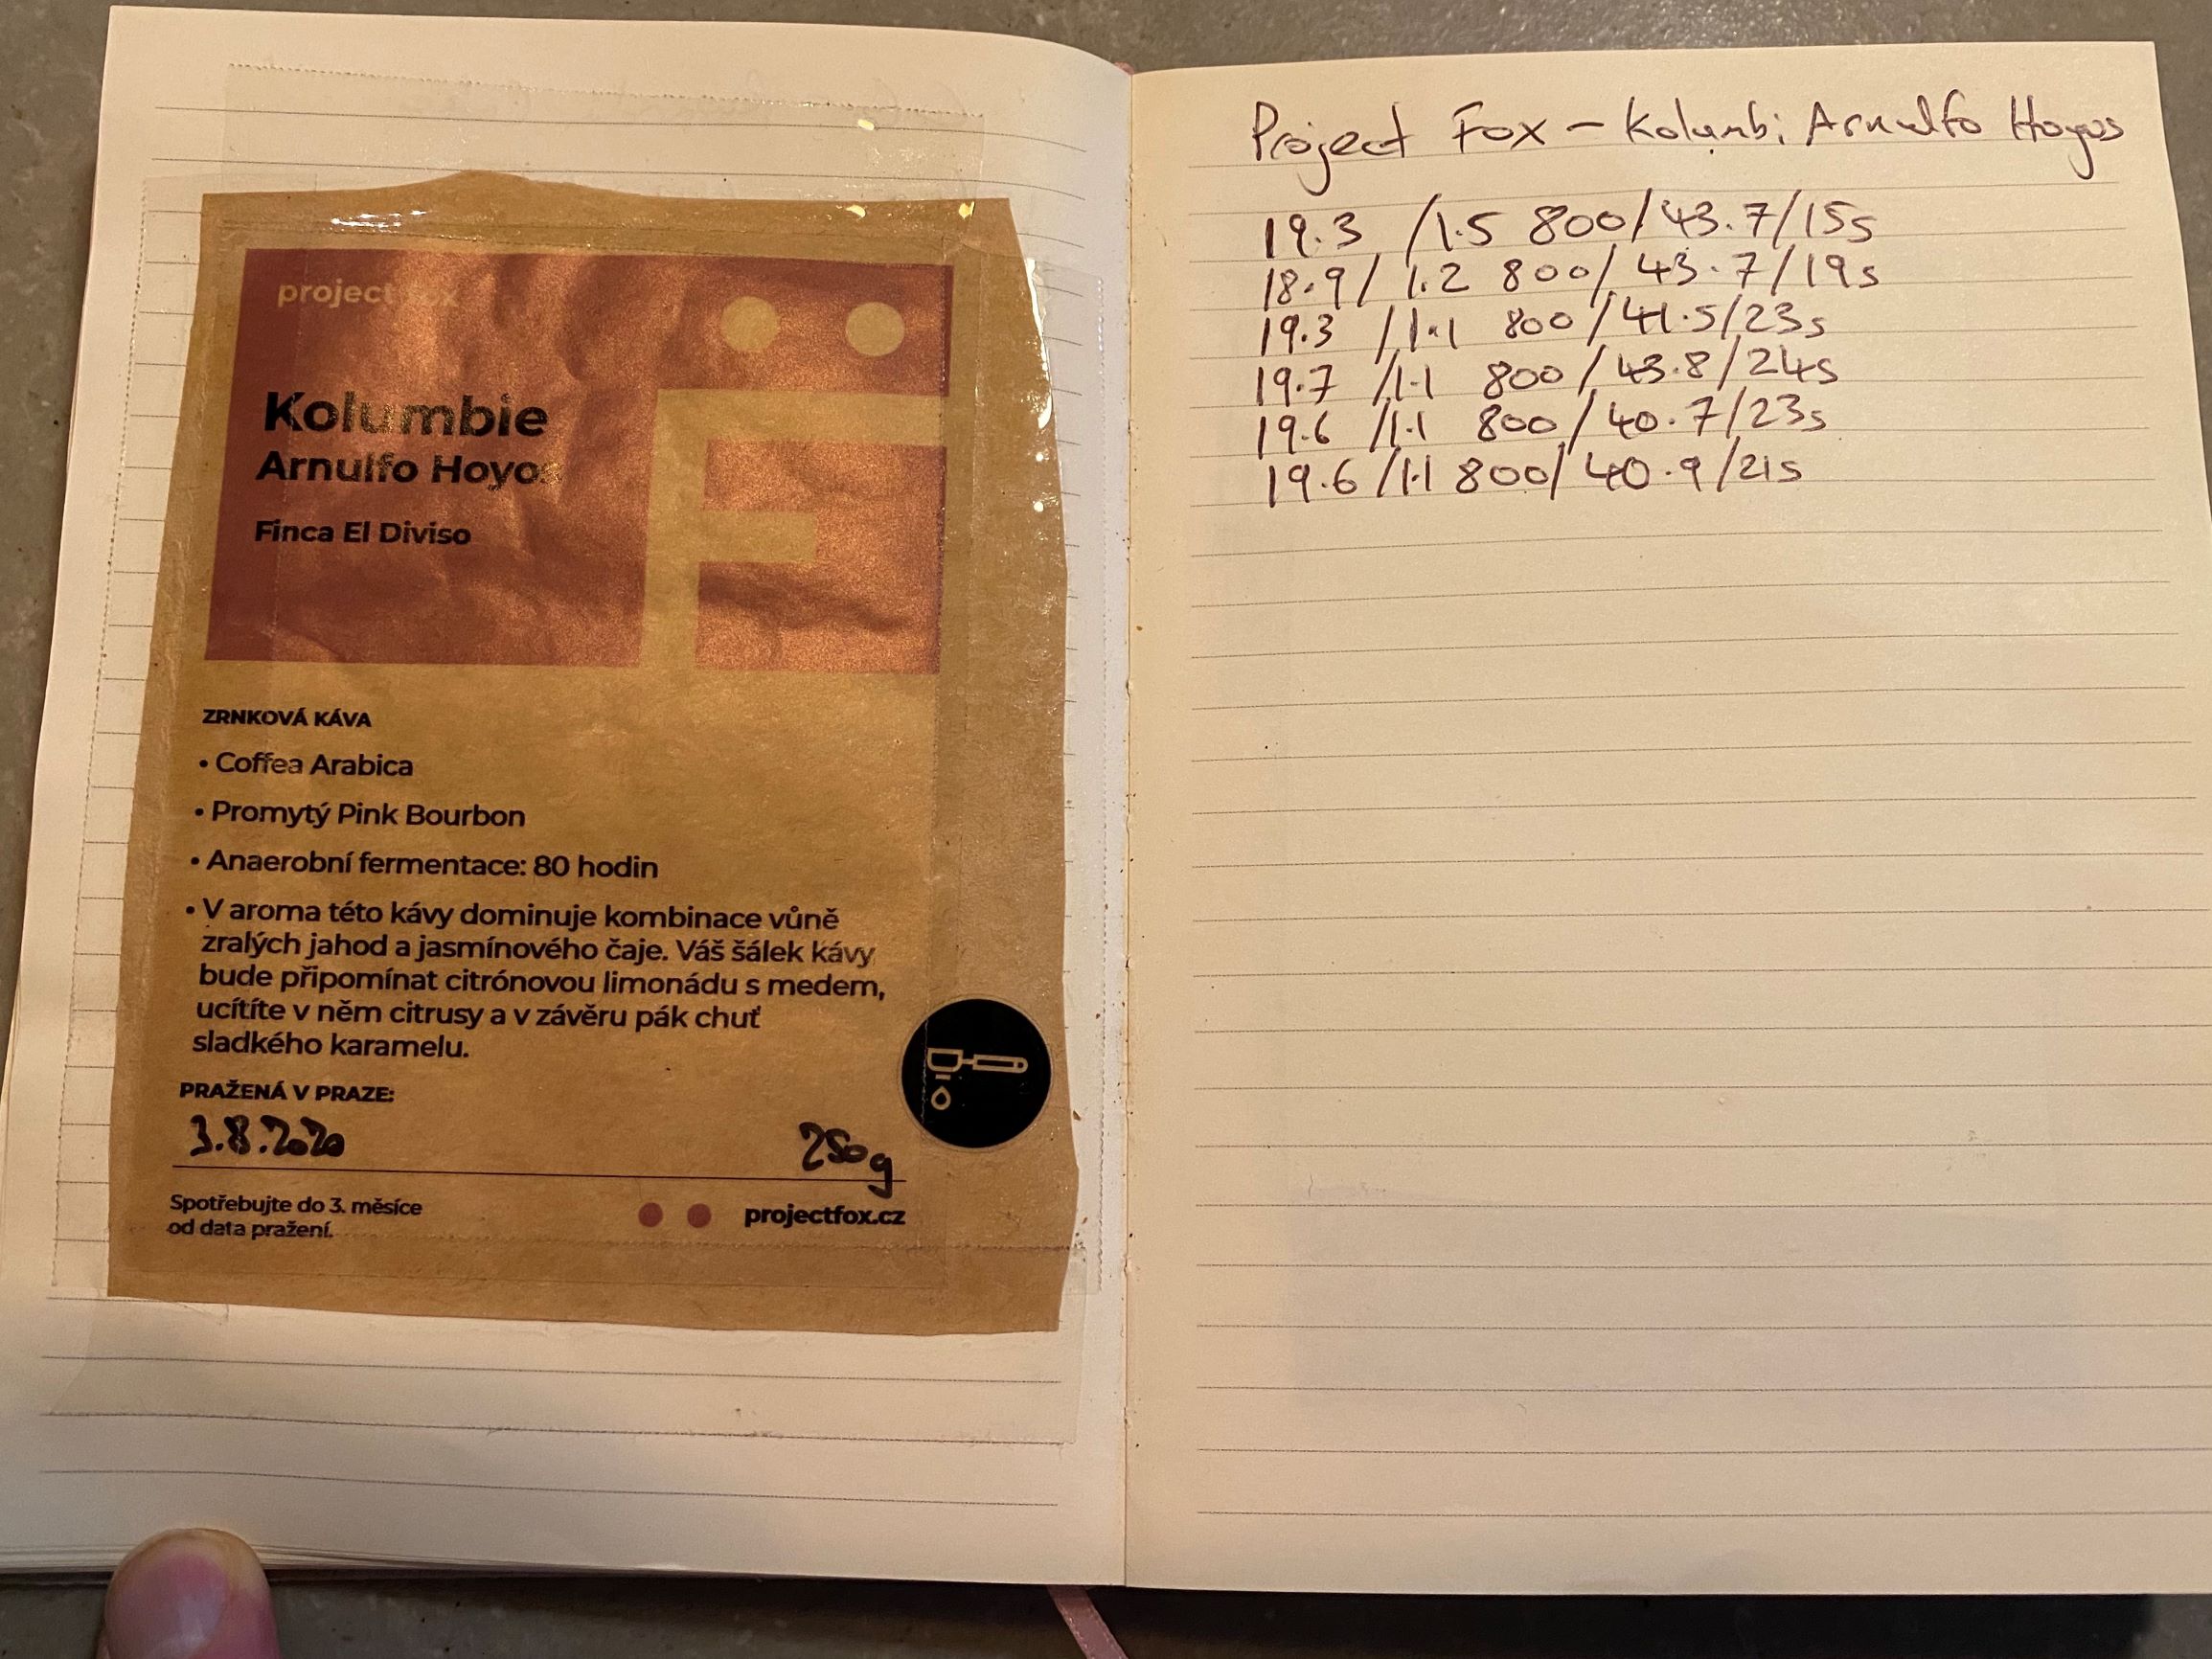 project fox
Kolumbie
Arnulfo Hoyos
Finca El Diviso
ZRNKOVÁ KÁVA
• Coffea Arabica
• Promytý Pink Bourbon
• Anaerobní fermentace: 80 hodin
• V aroma této kávy dominuje kombinace vůně
zralých jahod a jasmínového čaje. Váš šálek kávy
bude připomínat citrónovou limonádu s medem,
ucítíte v něm citrusy a v závěru pák chuť
sladkého karamelu.
PRAŽENÁ V PRAZE:
3.8.2020 250g
Spotřebujte do 3. měsíce
od data pražení.
projectfox.cz
Project Fox - Kolumbi Arnulfo Hoyos
19.3 /1.5 800/43.7/15s
18.9/ 1.2 800/ 43.7/19s
19.3 /1.1 800/41.5/23s
19.7 /1.1 800/43.8/24s
19.6 /1.1 800/40.7/23s
19.6 /1.1 800/40.9/21s